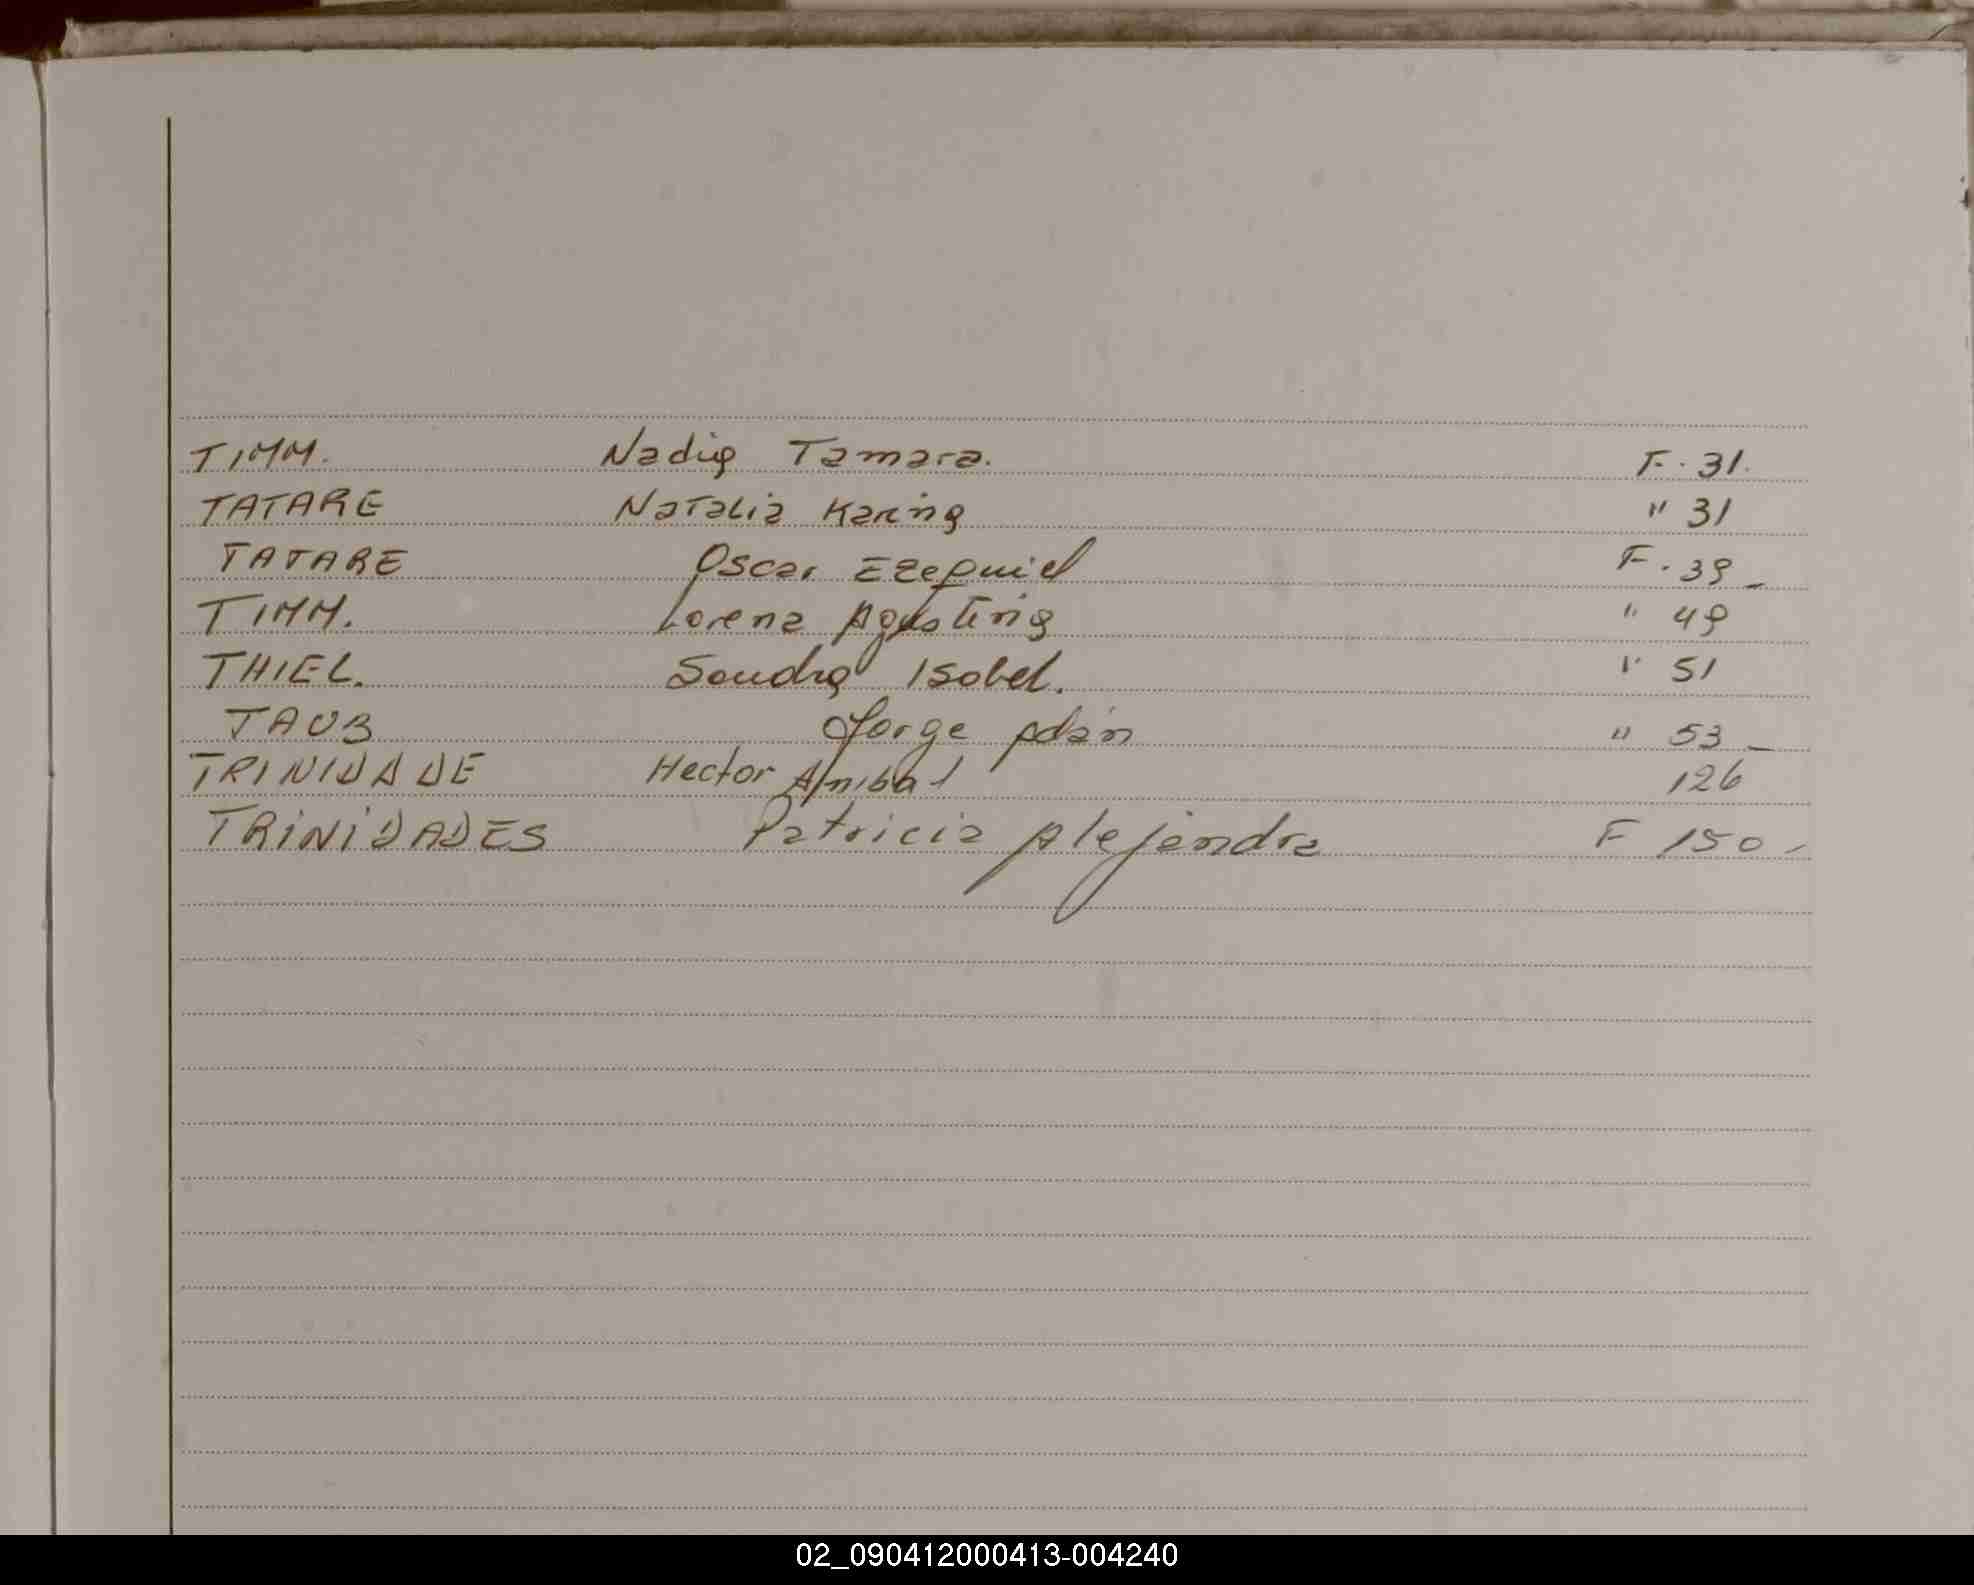 TIMM. Nadia Tamara. F. 31.
TATARE Natalia Karina " 31
TATARE Oscar Ezequiel F. 39_
TIMM. Lorena Agustina " 49
THIEL. Sandra Isabel. " 51
TAUB Jorge Adán " 53_
TRINIDADE Hector Anibal 126
TRINIDADES Patricia Alejandra F 150-
02_090412000413-004240